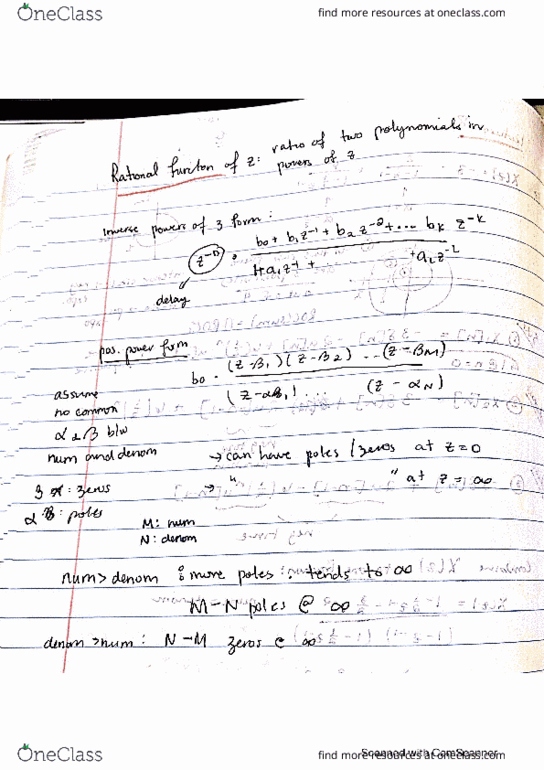 OneClass
find more resources at oneclass.com
Rational function of z: ratio of two polynomials in
powers of z
inverse powers of z form:
z^-D · b0 + b1z^-1 + b2 z^-2 + ... bk z^-k
1+a1z^-1 + +aLz^-L
delay
pos. power form
b0 · (z-β1)(z-β2) .. (z-βM)
(z-α1) · (z-αN)
assume
no common
α & β b/w
num and denom
→ can have poles / zeros at z=0
→ " " at z=∞
β : zeros
α : poles
M: num
N: denom
num > denom : more poles : tends to ∞
M-N poles @ ∞
denom > num : N-M zeros @ ∞
OneClass
Scanned with CamScanner
find more resources at oneclass.com